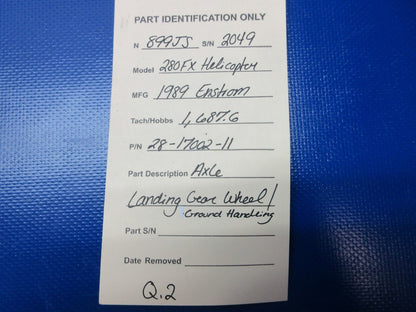 PART IDENTIFICATION ONLY
N 899JS S/N 2049
Model 280FX Helicopter
MFG 1989 Enstrom
Tach/Hobbs 1,687.6
P/N 28-17002-11
Part Description Axle
Landing Gear Wheel /
Ground Handling
Part S/N
Date Removed
Q.2